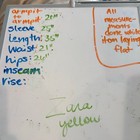 armpit
to
armpit 21"
sleeve 25"
Length: 35"
Waist 21"
hips: 21½"
inseam:
rise:
All
measure-
ments
done while
item laying
flat
una
yellow